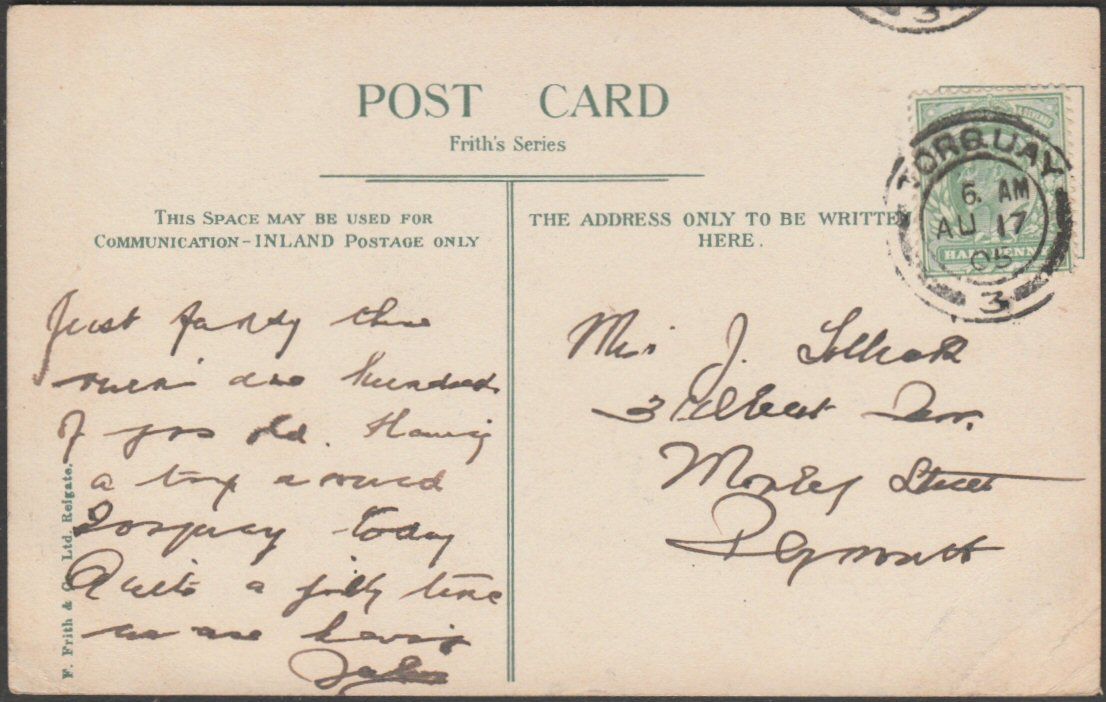 POST CARD
Frith's Series
THIS SPACE MAY BE USED FOR
COMMUNICATION-INLAND POSTAGE ONLY
THE ADDRESS ONLY TO BE WRITTEN
HERE.
TORQUAY
6. AM
AU 17
05
3
HALFPENNY
Just fancy these
are hundreds
of yrs old. Having
a trip around
Torquay today
Quite a jolly time
we are having
John
Miss J.
3 Albert Terr.
Morley Street
Plymouth
F. Frith & Co. Ltd. Reigate.